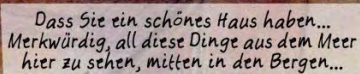 Dass Sie ein schönes Haus haben...
Merkwürdig, all diese Dinge aus dem Meer
hier zu sehen, mitten in den Bergen...